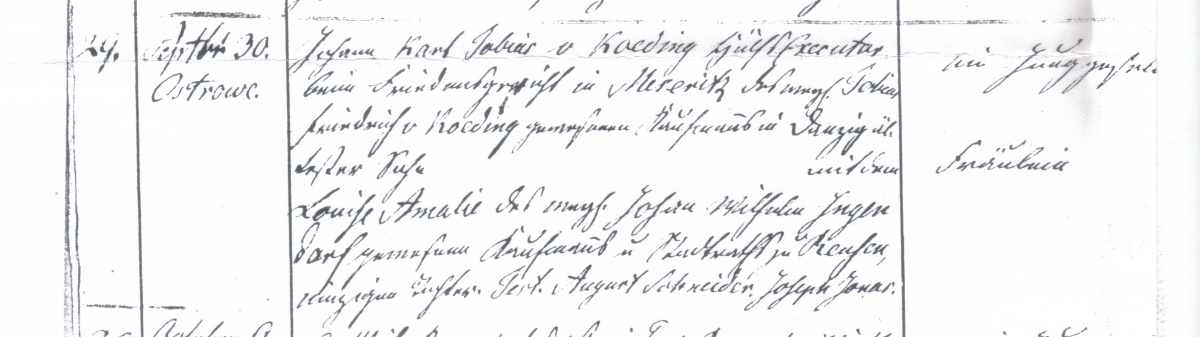 29. Septbr 30. Johann Karl Tobias v Koeding HülfsExecutor ein Junggesell
Ostrowe. beim Friedensgericht in Meseritz des weyl. Tobias
Friedrich v Koeding gewesenen Kaufmanns in Danzig äl-
tester Sohn mit dem Fräulein
Louise Amalie des weyl. Johan Wilhelm Ingen
dorf gewesenen Kaufmanns u Stadtraths zu
einzigen Tochter. Test. August Schneider. Joseph Jonas.